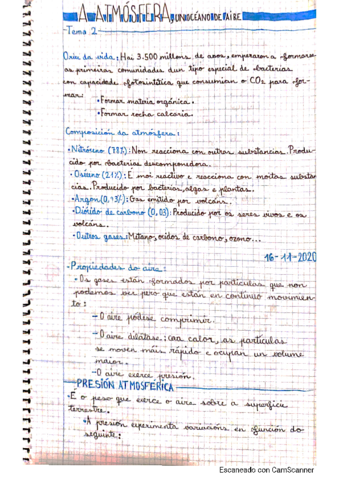 A ATMÓSFERA, UN OCÉANO DE AIRE
Tema 2
Orixe da vida: Hai 3.500 millons de anos, empezaron a formarse
as primeiras comunidades dun tipo especial de bacterias
con capacidade fotosintética que consumían o CO2 para for-
mar:
• Formar materia orgánica.
• Formar rocha calcaria.
Composición da atmósfera:
• Nitróxeno (78%): Non reacciona con outras substancias. Produ-
cido por bacterias descompoñedoras.
• Osíxeno (21%): É moi reactivo e reacciona con moitas substan-
cias. Producido por bacterias, algas e plantas.
• Argon (0,9%): Gas emitido por volcáns.
• Dióxido de carbono (0,03): Producido por os seres vivos e os
volcáns.
• Outros gases: Metano, óxidos de carbono, ozono...
16-11-2020
- Propiedades do aire:
- Os gases están formados por partículas que non
podemos ver pero que están en continuo movemen-
to:
- O aire pódese comprimir.
- O aire dilátase: coa calor, as partículas
se moven máis rápido e ocupan un volume
maior.
- O aire exerce presión.
- PRESIÓN ATMOSFÉRICA
• É o peso que exerce o aire sobre a superficie
terrestre.
• A presión experimenta variacións en función do
seguinte:
Escaneado con CamScanner